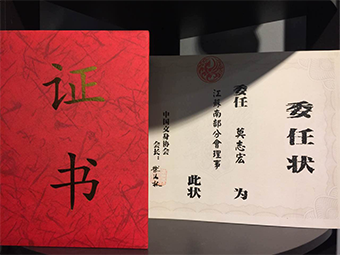 证书
委任状
委任 莫志宏 为
江蘇南部分會理事
此状
中国文身协会
会长: